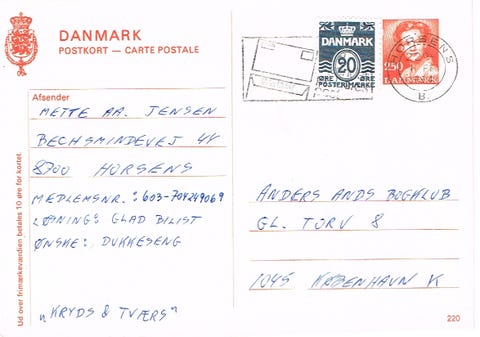 DANMARK
POSTKORT — CARTE POSTALE
DANMARK
20
ØRE ØRE
POSTFRIMÆRKE
250
DANMARK
HORSENS
B.
Afsender
METTE AA. JENSEN
BECHSMINDEVEJ 4V
8700 HORSENS
MEDLEMSNR.: 603-704249069
LØSNING: GLAD BILIST
ØNSKE: DUKKESENG
"KRYDS & TVÆRS"
ANDERS ANDS BOGKLUB
GL. TORV 8
1045 KØBENHAVN K
Ud over frimærkeværdien betales 10 øre for kortet.
220